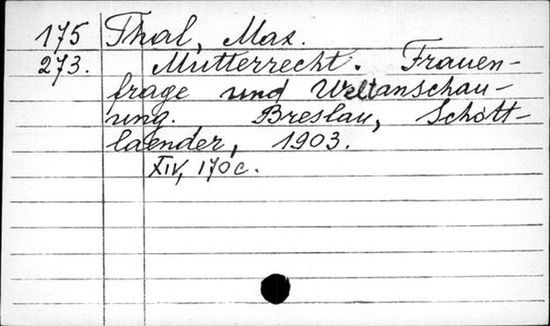 175 Thal, Max.
273. Mutterrecht. Frauen-
frage und Weltanschau-
ung. Breslau, Schott-
laender, 1903.
XIV, 170 c.